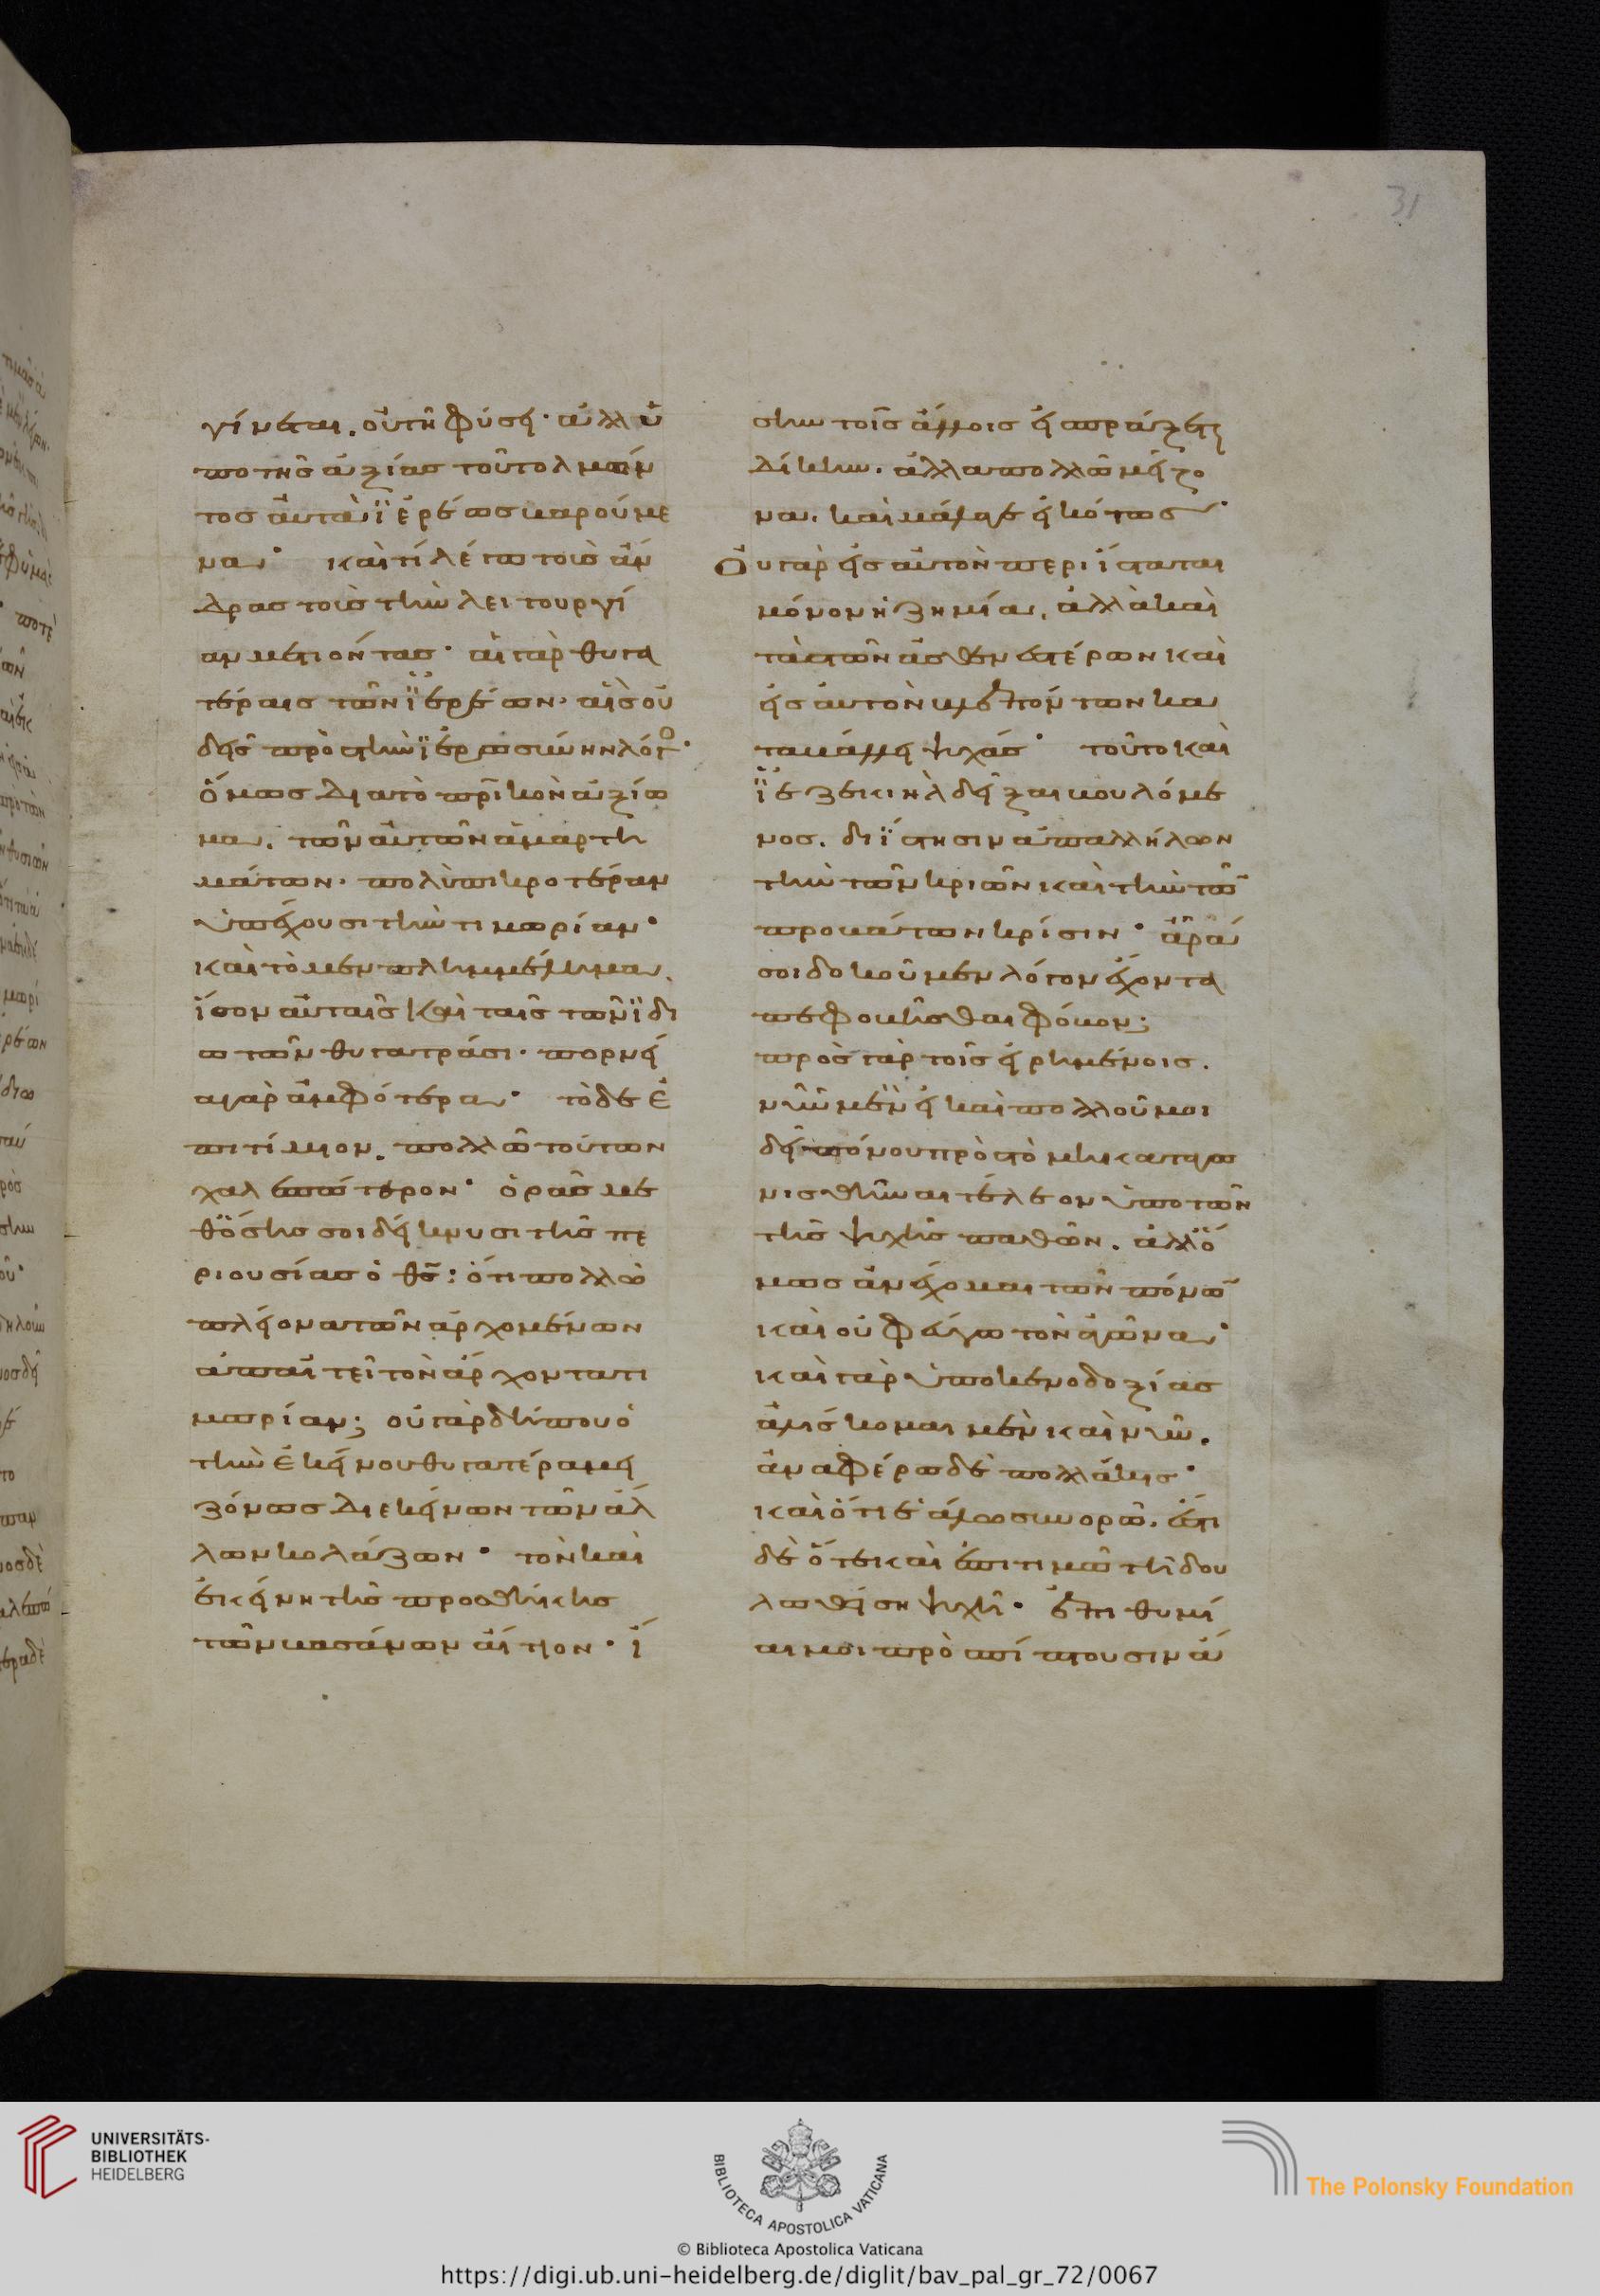 γίνεται. οὐ τῆ φύσει· ἀλλ ὑ
πο τῆς ἀξίας τοῦ τολμῶν
τος αὐτὰ ϊερέως βαρούμε
να· καὶ τί λέγω τοὺς ἄν
δρας τοὺς τὴν λειτουργί
αν μετιόντας· αἱ γὰρ θυγα
τέραις τῶν ϊερέων· αἷς οὐ
δεὶς πρὸς τὴν ϊερωσύνην λόγο·
ὅμως δια τὸ πρικὸν ἀξίω
μα. τῶν αὐτῶν ἁμαρτη
μάτων· πολὺ πικροτέραν
ὑπέχουσι τὴν τιμωρίαν·
καὶ τὸ μεν πλημμέλημα.
ἴσον αὐταῖς καὶ ταῖς τῶν ϊδι
ωτῶν θυγατράσι· πορνεί
α γὰρ ἀμφότερα· τὸ δε ἐ
πιτίμιον. πολλῶ τούτων
χαλεπώτερον· ὁρᾶς με
θ ὅσης σοι δείκνυσι τῆς πε
ριουσίας ὁ θς: ὅτι πολλῶ
πλείονα τῶν ἀρχομένων
ἀπαιτεῖ τὸν ἄρχοντα τι
μωρίαν; οὐ γὰρ δήπου ὁ
τὴν ἐκείνου θυγατέρα μει
ζόνως δι ἐκείνων τῶν ἄλ
λων κολάζων· τὸν καὶ
ἐκείνη τῆς προσθήκης
τῶν βασάνων αἴτιον· ἴ
σην τοῖς ἄλλοις εἰσπράξεται
δίκην. ἀλλα πολλῶ μείζο
να. καὶ μάλα γε εἰκότως·
Οὐ γὰρ εἰς αὐτὸν περιίσταται
μόνον ἡ ζημία. ἀλλὰ καὶ
τὰς τῶν ἀσθενεστέρων καὶ
εἰς αὐτὸν βλεπόντων κα
ταβάλλει ψυχάς· τοῦτο καὶ
ϊεζεκιηλ δεῖξαι βουλόμε
νος. διΐστησιν ἀπ αλλήλων
τὴν τῶν κριῶν καὶ τὴν τῶ
προβάτων κρίσιν· ἆρά
σοι δοκοῦμεν λόγον ἔχοντα
πεφοβῆσθαι φόβον;
πρὸς γὰρ τοῖς εἰρημένοις.
νῦν μὲν εἰ καὶ πολλοῦ μοι
δεῖ πόνου πρὸς τὸ μὴ καταγω
νισθῆναι τέλεον ὑπο τῶν
τῆς ψυχῆς παθῶν. ἀλλ ὅ
μως ἀνέχομαι τῶν πόνω
καὶ οὐ φεύγω τὸν ἀγῶνα·
καὶ γὰρ ὑπο κενοδοξίας
ἁλίσκομαι μὲν καὶ νῦν.
ἀναφέρω δὲ πολλάκις·
καὶ ὅτι ἑάλω συνορῶ. ἔστι
δὲ ὅτε καὶ ἐπιτιμῶ τῆ δου
λωθείση ψυχῆ· ἐπιθυμί
αι μοι προσπίπτουσιν ἄ
31
UNIVERSITÄTS-
BIBLIOTHEK
HEIDELBERG
BIBLIOTECA APOSTOLICA VATICANA
The Polonsky Foundation
© Biblioteca Apostolica Vaticana
https://digi.ub.uni-heidelberg.de/diglit/bav_pal_gr_72/0067